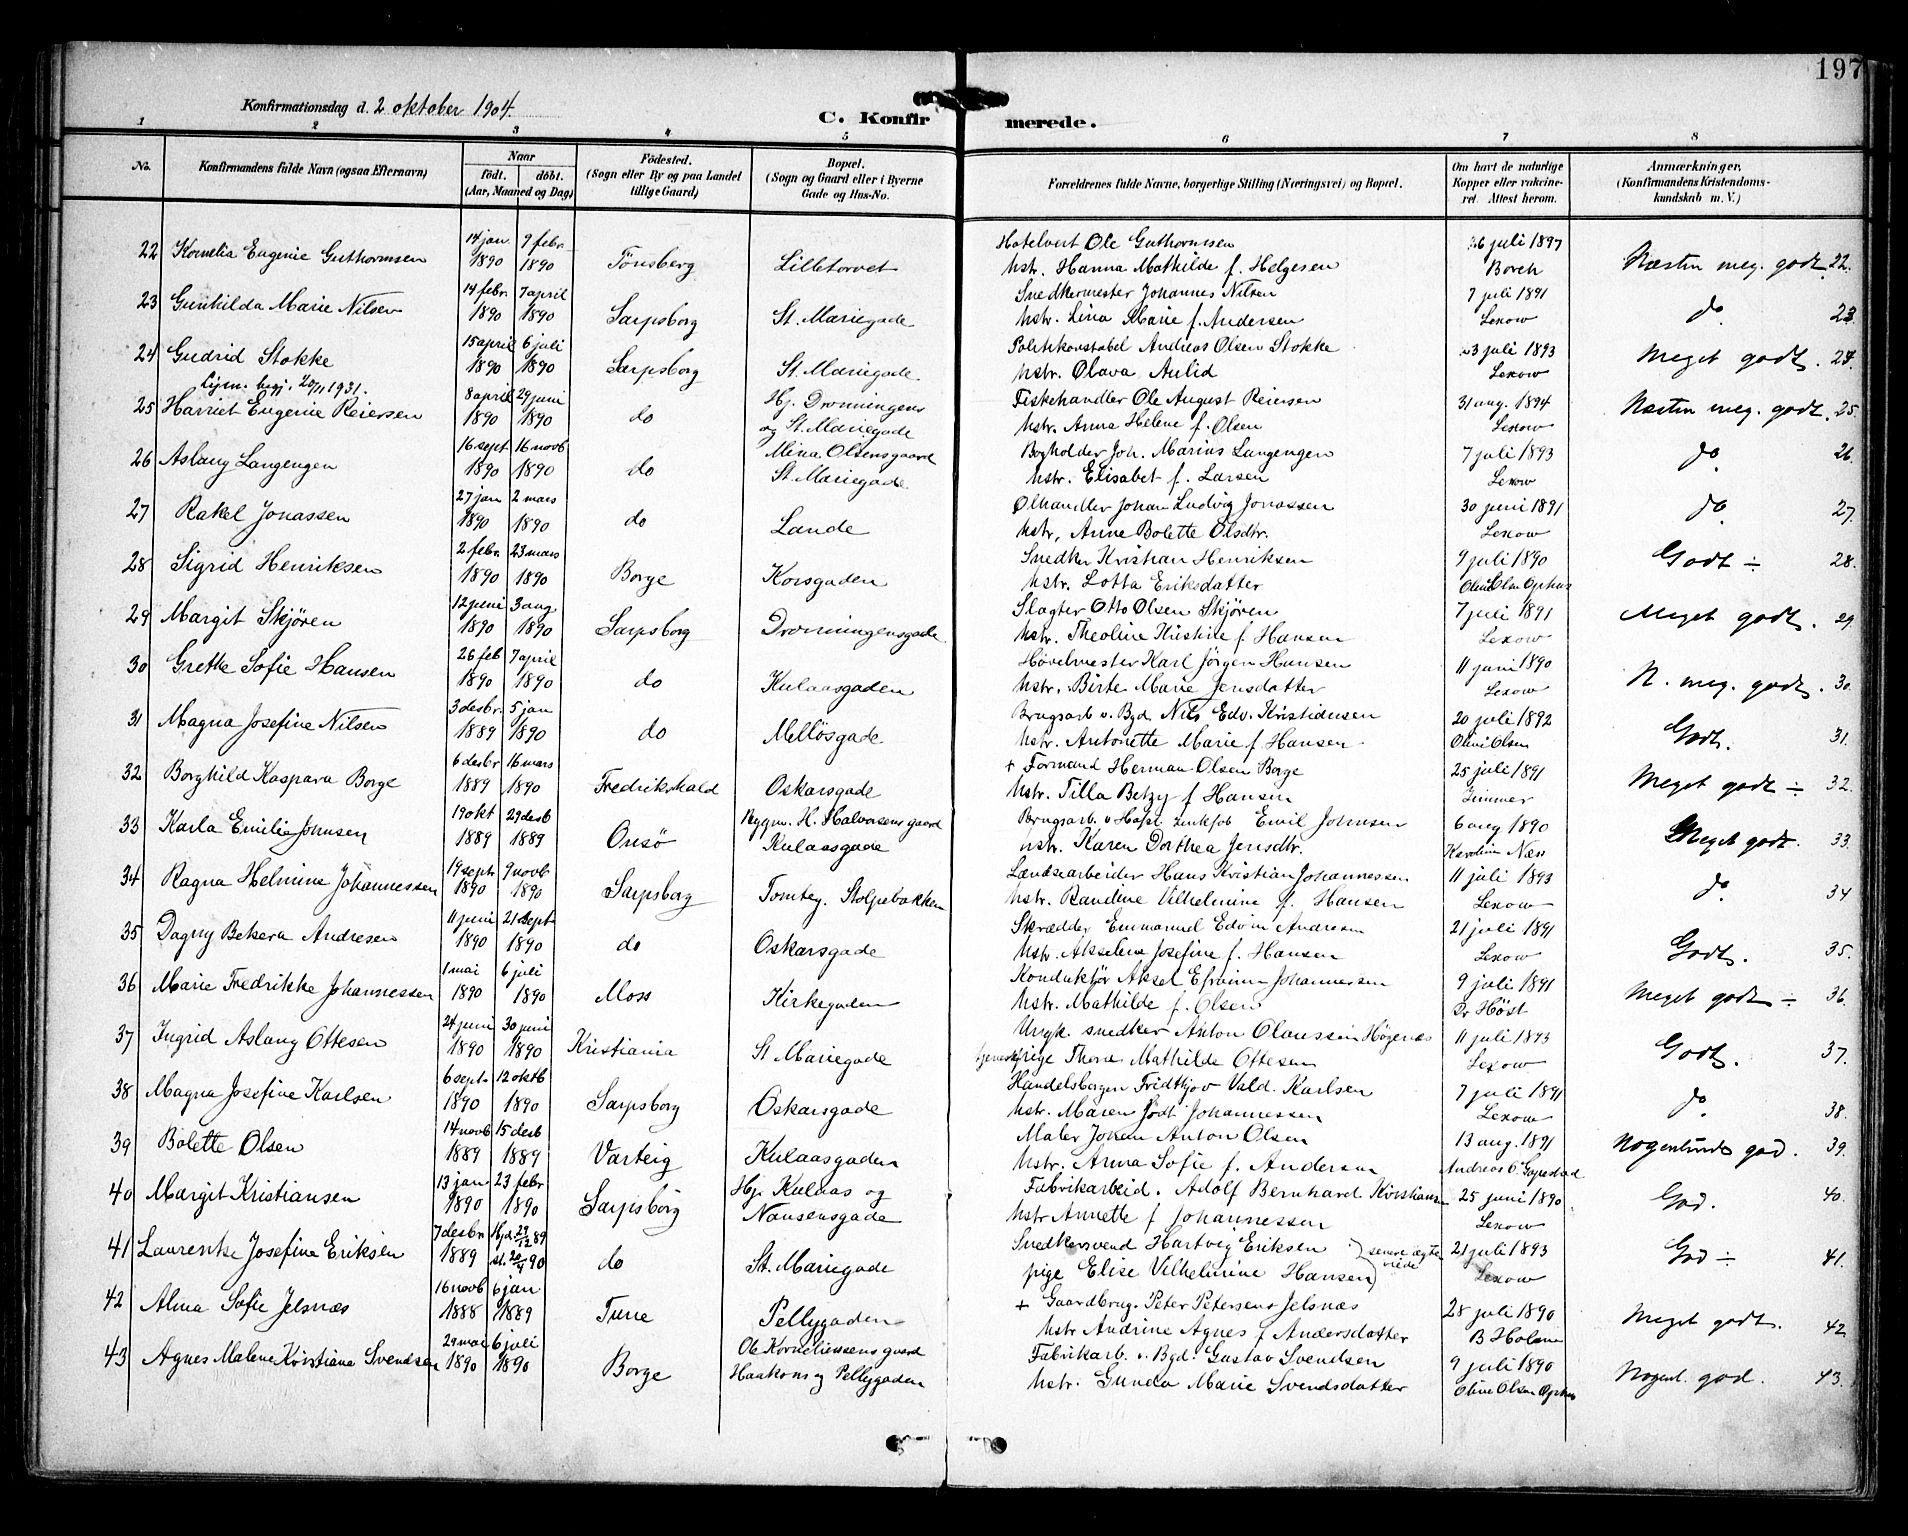 197
Konfirmationsdag d. 2 oktober 1904.
C. Konfirmerede.
1 2 3 4 5 6 7 8
No. Konfirmandens fulde Navn (ogsaa Efternavn) Naar födt. döbt. (Aar, Maaned og Dag) Födested. (Sogn eller By og paa Landet tillige Gaard) Bopæl. (Sogn og Gaard eller i Byerne Gade og Hus-No. Forældrenes fulde Navne, borgerlige Stilling (Næringsvei) og Bopæl. Om havt de naturlige Kopper eller vakcineret. Attest herom. Anmærkninger, (Konfirmandens Kristendomskundskab m. V.)
22 Kornelia Eugenie Guthormsen 14 jan. 1890 9 febr. 1890 Tönsberg Lilletorvet Hotelvert Ole Guthormsen
hstr. Hanna Mathilde f. Helgesen 26 juli 1897 Borch Næsten meg. godt. 22.
23 Gunhilda Marie Nilsen 14 febr. 1890 7 april 1890 Sarpsborg St. Mariegade Snedkermester Johannes Nilsen
hstr. Lina Marie f. Andersen 7 juli 1891 Lexow do 23.
24 Gudrid Stokke 15 april 1890 6 juli 1890 Sarpsborg St. Mariegade Politikonstabel Andreas Olsen Stokke
hstr. Olava Aulid 3 juli 1893 Lexow Meget godt. 24.
20/11 1931.
25 Harriet Eugenie Reiersen 8 april 1890 29 juni 1890 do Hj. Dronningens og St. Mariegade Fiskehandler Ole August Reiersen
hstr. Anna Helene f. Olsen 31 aug. 1894 Lexow Næsten meg. godt. 25.
26 Aslaug Langengen 16 sept 1890 16 novb 1890 do Mina Olsensgaard St. Mariegade Bogholder Joh. Marius Langengen
hstr. Elisabet f. Larsen 7 juli 1893 Lexow do 26.
27 Rakel Jonassen 27 jan 1890 2 mars 1890 do Lande Ølhandler Johan Ludvig Jonassen
hstr. Anne Bolette Olsdtr. 30 juni 1891 Lexow do 27.
28 Sigrid Henriksen 2 febr. 1890 23 mars 1890 Borge Korsgaden Snedker Kristian Henriksen
hstr. Lotta Eriksdatter 9 juli 1890 Olsen Ophus Godt ÷ 28.
29 Margit Skjören 12 juni 1890 3 aug 1890 Sarpsborg Dronningensgade Slagter Otto Olsen Skjören
hstr. Theoline Kristine f. Hansen 7 juli 1891 Lexow Meget godt. 29.
30 Grethe Sofie Hansen 26 feb 1890 7 april 1890 do Kulaasgaden Høvelmester Karl Jörgen Hansen
hstr. Birte Marie Jensdatter 11 juni 1890 Lexow N. meg. godt. 30.
31 Magna Josefine Nilsen 3 desbr. 1889 5 jan 1890 do Mellösgade Brugsarb v. Bgd. Nils Edv. Kristiansen
hstr. Antonette Marie f. Hansen 20 juli 1892 Olsen Godt. 31.
32 Borghild Kaspara Borge 6 desbr 1889 16 mars 1890 Fredrikshald Oskarsgade + Formand Herman Olsen Borge
hstr. Tilla Betzy f Hansen 25 juli 1891 Zimmer Meget godt ÷ 32.
33 Karla Emilie Johnsen 19 okt 1889 29 desb 1889 Onsö Bygm. H. Halvorsens gaard Kulaasgade Brugsarb. v Emil Johnsen
hstr. Karen Dorthea Jensdtr. 6 aug 1890 Karoline Næss Meget godt. 33.
34 Ragna Helmine Johannessen 19 sept. 1890 9 novb 1890 Sarpsborg Tomteg. Stolpebakken Landsearbeider Hans Kristian Johannessen
hstr. Randine Vilhelmine f. Hansen 11 juli 1893 Lexow do 34
35 Dagny Betzera Andresen 11 juni 1890 21 sept. 1890 do Oskarsgade Skrædder Emmanuel Edvin Andresen
hstr. Akseline Josefine f. Hansen 21 juli 1891 Lexow Godt. 35.
36 Marie Fredrikke Johannessen 1 mai 1890 6 juli 1890 Moss Kirkegaden Konduktör Aksel Efraim Johannessen
hstr. Mathilde f. Olsen 9 juli 1891 Dr Höst Meget godt ÷ 36.
37 Ingrid Aslaug Ottesen 24 juni 1890 30 juni 1890 Kristiania St Mariegade Ungk. snedker Anton Olaussen Högenæs
pige Thora Mathilde Ottesen 11 juli 1893 Lexow Godt. 37.
38 Magna Josefine Karlsen 6 sept. 1890 12 oktb 1890 Sarpsborg Oskarsgade Handelsborger Fridthjov Vald. Karlsen
hstr. Maren födt Johannesen 7 juli 1891 Lexow do 38.
39 Bolette Olsen 14 novb 1889 15 desb 1889 Varteig Kulaasgaden Maler Johan Anton Olsen
hstr. Anna Sofie f. Andersen 13 aug. 1891 Andreas O. Nogenlunde god. 39.
40 Margit Kristiansen 13 jan 1890 23 febr 1890 Sarpsborg Hj. Kulaas og Nansensgade Fabrikarbeid. Adolf Bernhard Kristiansen
hstr Annette f Johannessen 25 juni 1890 Lexow God. 40.
41 Laurentse Josefine Eriksen 7 desbr 1889 Hjd. 29/12 89 st. 20/4 90 do St. Mariegade Snedkersvend Hartvig Eriksen
pige Elise Vilhelmine Hansen) senere ægteviede 21 juli 1893 Lexow God ÷ 41.
42 Alma Sofie Jelsnæs 16 novb 1888 6 jan 1889 Tune Pellygaden + Gaardbrug. Peter Petersen Jelsnæs
hstr Andrine Agnes f Andersdatter 28 juli 1890 B Holene Meget godt. 42
43 Agnes Malene Kristiana Svendsen 29 mai 1890 6 juli 1890 Borge Ole Korneliussens gaard Haakons og Pellygaden Fabrikarb. v. Bgd. Gustav Svendsen
hstr. Gunda Marie Svendsdatter 9 juli 1890 Oline Olsen Ophus Nogenl. god. 43.